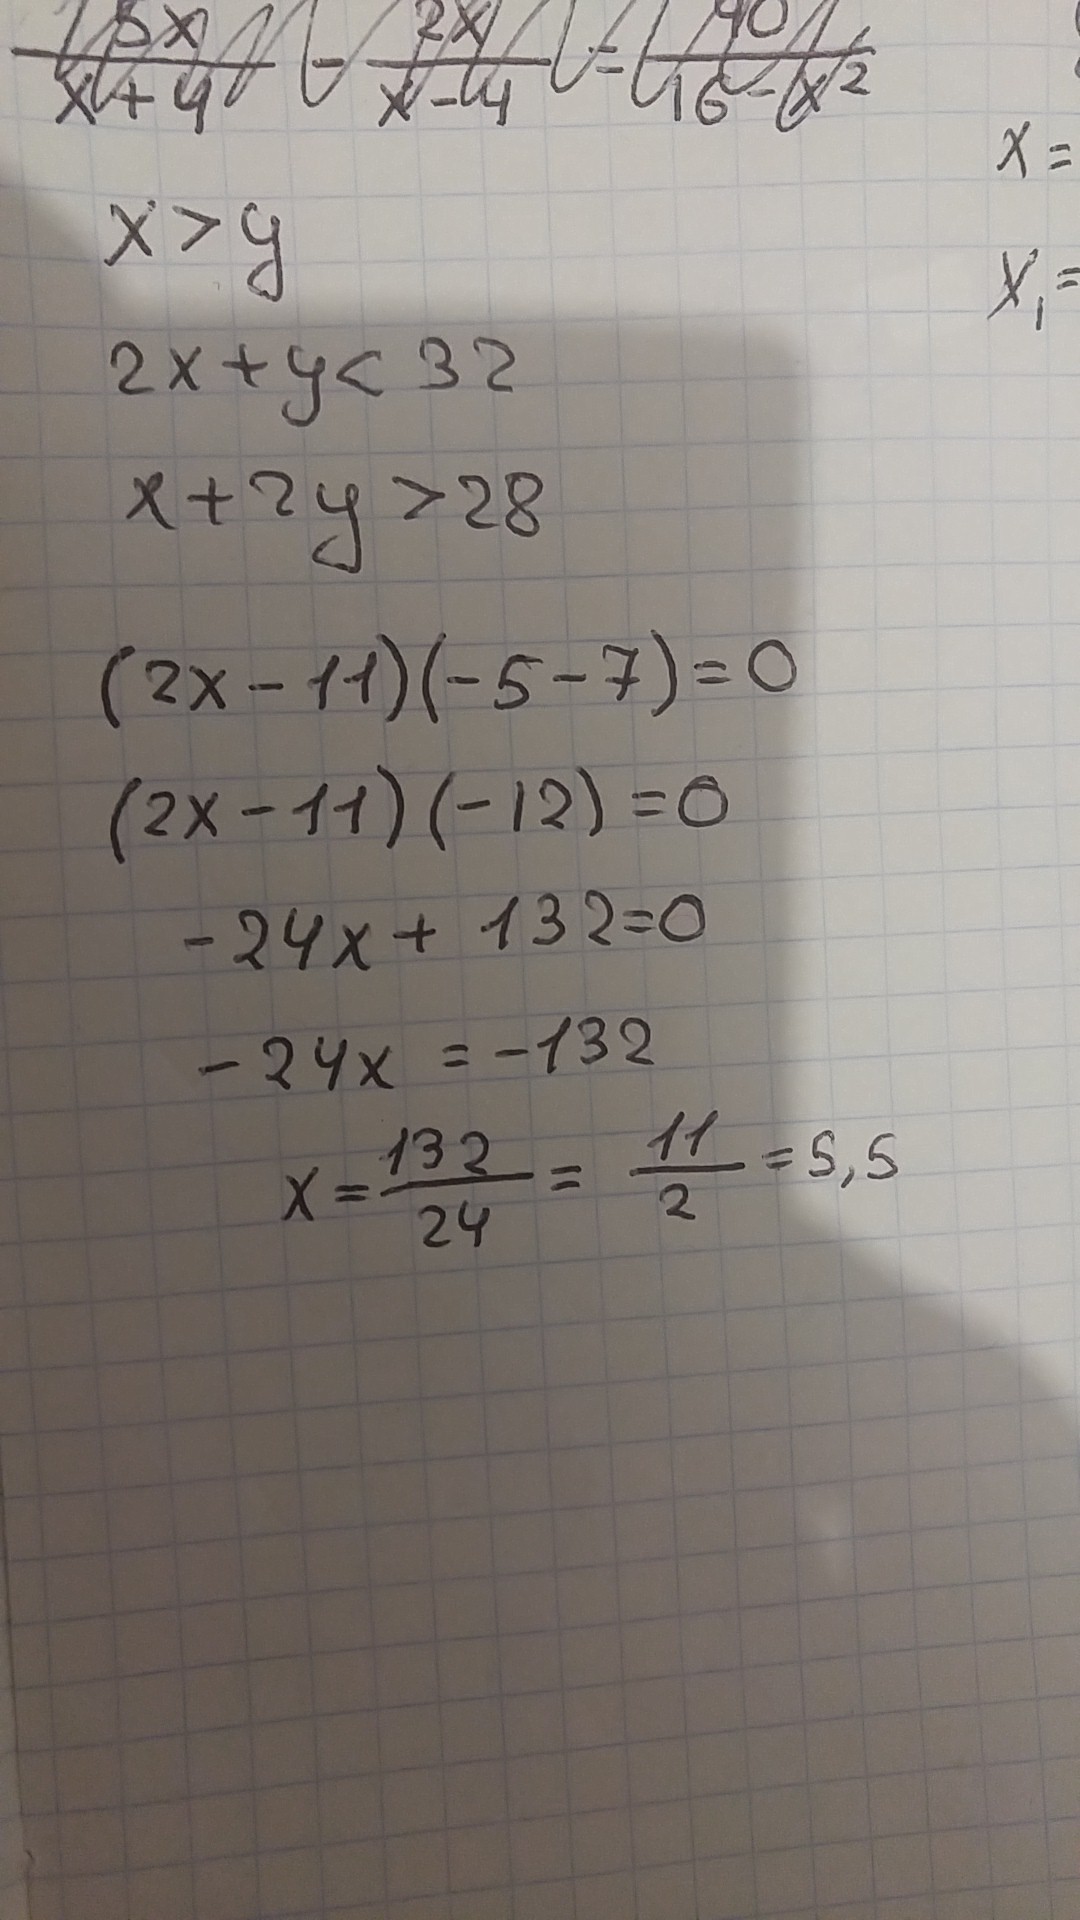 5x/(x+4) - 2x/(x-4) = 40/(16-x²)
x =
x₁ =
x > y
2x + y < 32
x + 2y > 28
(2x - 11)(-5 - 7) = 0
(2x - 11)(-12) = 0
-24x + 132 = 0
-24x = -132
x = 132/24 = 11/2 = 5,5